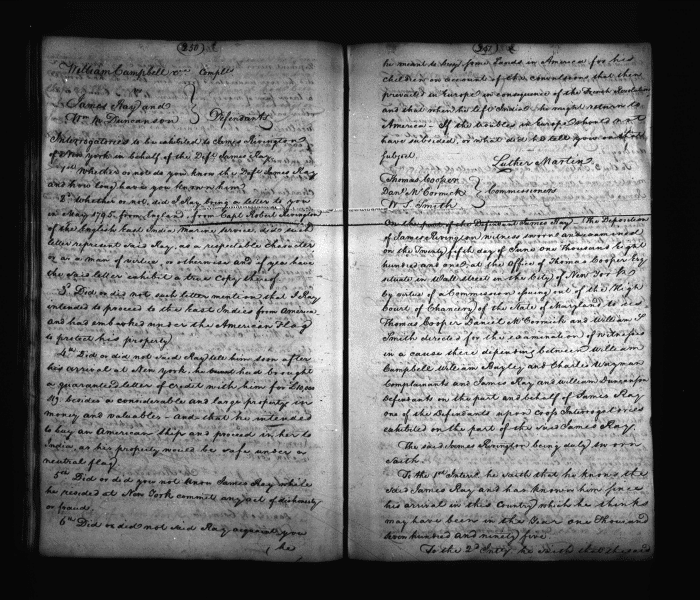 (230)
William Campbell vs Complt
James Ray and
Wm M Duncanson } Defendants
Interrogatories to be exhibited to James Rivington
of New York in behalf of the Deft James Ray.
1st Whether or not do you know the Deft James Ray
and how long have you known him?
2d Whether or not, did J Ray bring a letter to you
in May 1795 from England, from Capt Robert Rivington
of the English East India Marine service, did such
letter represent said Ray, as a respectable Character
or as a man of service or otherwise and if yea have
the said letter exhibit a true Copy thereof
3d Did or did not such letter mention that J Ray
intended to proceed to the East Indies from America
and has embarked under the American Flag
to protect his property
4th Did or did not said Ray tell him soon after
his arrival at New York. he had brought
a guaranteed letter of credit with him for
besides a considerable and large property in
money and valuables - And that he intended
to buy an American Ship and proceed in her to
India, as his property would be safe under a
neutral flag
5th Did or did you not know James Ray while
he resided at New York commit any act of dishonesty
or fraud.
6th Did or did not said Ray acquaint you
he
(231)
he meant to buy some Lands in America for his
children on account of the convulsions that then
prevailed in Europe in consequence of the French Revolution
and that when he left India, he might return to
America - If the troubles in Europe should not
have subsided, or what did he tell you on that
subject.
Luther Martin
Thomas Cooper
Danl McCormick } Commissioners
W S. Smith
On the part of the Defendant James Ray. The Deposition
of James Rivington witness sworn and examined
on the Twenty fifth day of June One Thousand Eight
hundred and one at the Office of Thomas Cooper Esq
situate in Wall Street in the City of New York
by virtue of a Commission issuing out of the High
Court of Chancery of the State of Maryland to us
Thomas Cooper Daniel McCormick and William S
Smith directed for the examination of Witnesses
in a cause there depending between William
Campbell William Bayley and Charles Wayman
Complainants and James Ray and William Duncanson
Defendants on the part and behalf of James Ray
one of the Defendants upon cross Interrogatories
exhibited on the part of the said James Ray.
The said James Rivington being duly sworn
saith.
To the 1st Interry he saith that he knows the
said James Ray and has known him since
his arrival in this Country which he thinks
may have been in the Year one Thousand
seven hundred and ninety five
To the 2d Interry he saith that the said